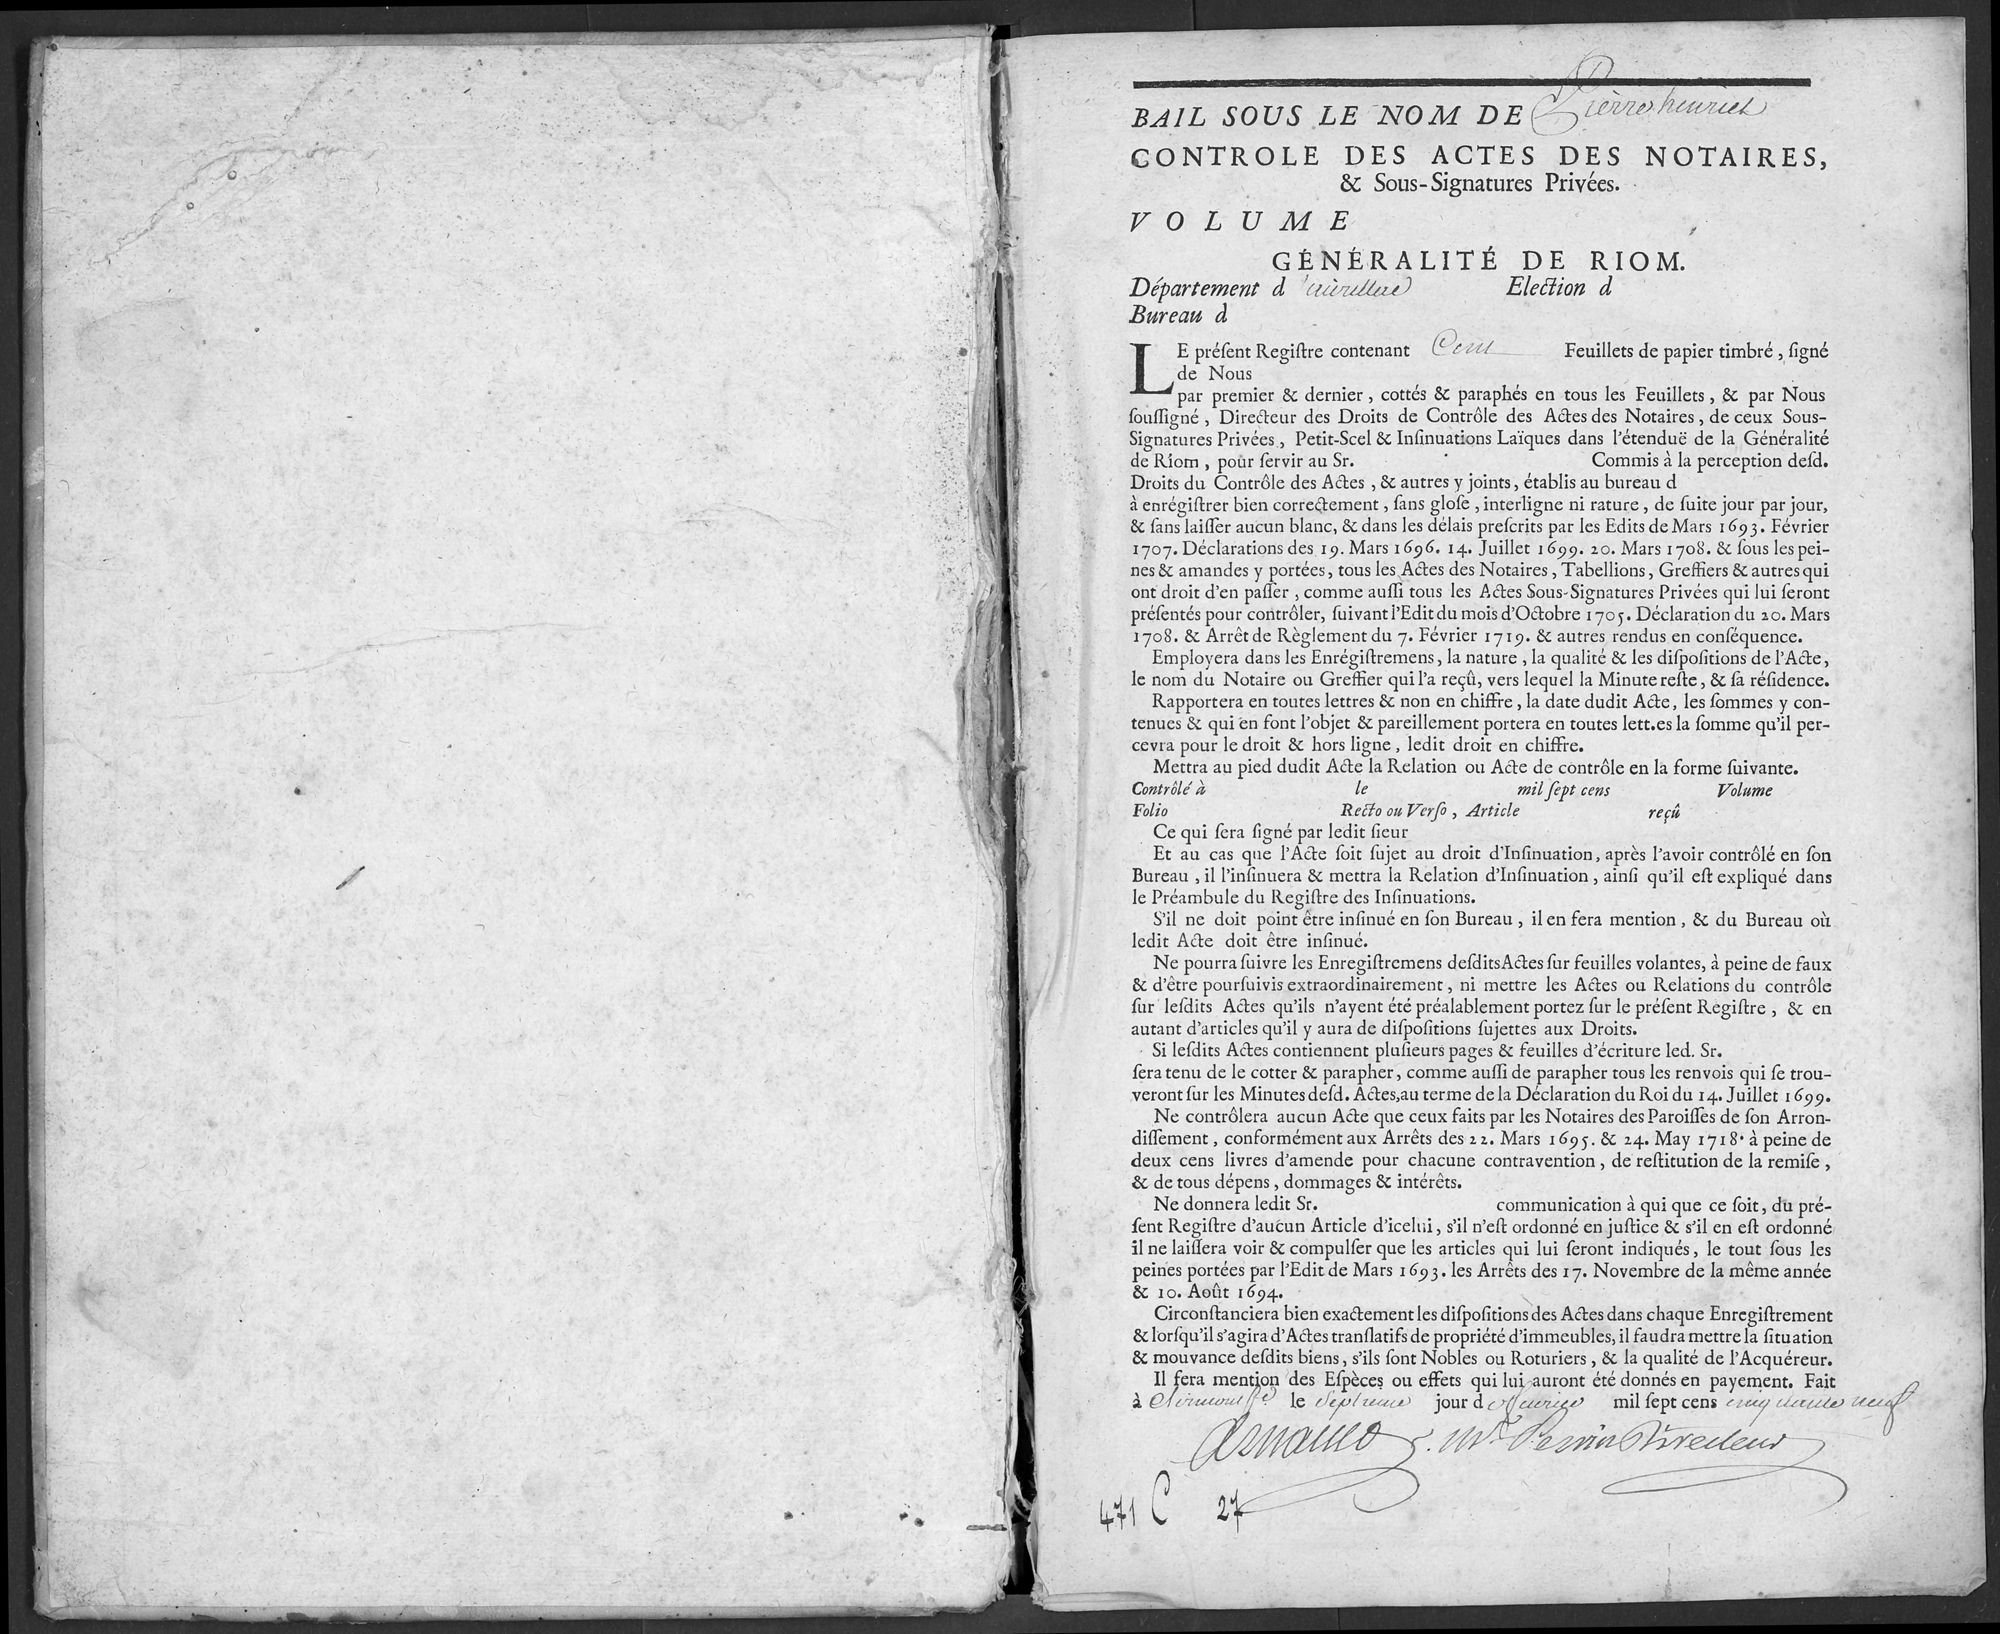 BAIL SOUS LE NOM DE Pierre henriet
CONTROLE DES ACTES DES NOTAIRES,
& Sous-Signatures Privées.
VOLUME
GÉNÉRALITÉ DE RIOM.
Département d'aurillac Election d
Bureau d
LE préſent Regiſtre contenant Cent Feuillets de papier timbré, ſigné
de Nous
par premier & dernier, cottés & paraphés en tous les Feuillets, & par Nous
ſouſſigné, Directeur des Droits de Contrôle des Actes des Notaires, de ceux Sous-
Signatures Privées, Petit-Scel & Inſinuations Laïques dans l'étenduë de la Généralité
de Riom, pour ſervir au Sr. Commis à la perception deſd.
Droits du Contrôle des Actes, & autres y joints, établis au bureau d
à enrégiſtrer bien correctement, ſans gloſe, interligne ni rature, de ſuite jour par jour,
& ſans laiſſer aucun blanc, & dans les délais preſcrits par les Edits de Mars 1693. Février
1707. Déclarations des 19. Mars 1696. 14. Juillet 1699. 20. Mars 1708. & ſous les pei-
nes & amandes y portées, tous les Actes des Notaires, Tabellions, Greffiers & autres qui
ont droit d'en paſſer, comme auſſi tous les Actes Sous-Signatures Privées qui lui ſeront
préſentés pour contrôler, ſuivant l'Edit du mois d'Octobre 1705. Déclaration du 20. Mars
1708. & Arrêt de Règlement du 7. Février 1719. & autres rendus en conſéquence.
Employera dans les Enrégiſtremens, la nature, la qualité & les diſpoſitions de l'Acte,
le nom du Notaire ou Greffier qui l'a reçû, vers lequel la Minute reſte, & ſa réſidence.
Rapportera en toutes lettres & non en chiffre, la date dudit Acte, les ſommes y con-
tenues & qui en font l'objet & pareillement portera en toutes lett.es la ſomme qu'il per-
cevra pour le droit & hors ligne, ledit droit en chiffre.
Mettra au pied dudit Acte la Relation ou Acte de contrôle en la forme ſuivante.
Contrôlé à le mil ſept cens Volume
Folio Recto ou Verſo, Article reçû
Ce qui ſera ſigné par ledit ſieur
Et au cas que l'Acte ſoit ſujet au droit d'Inſinuation, après l'avoir contrôlé en ſon
Bureau, il l'inſinuera & mettra la Relation d'Inſinuation, ainſi qu'il eſt expliqué dans
le Préambule du Regiſtre des Inſinuations.
S'il ne doit point être inſinué en ſon Bureau, il en fera mention, & du Bureau où
ledit Acte doit être inſinué.
Ne pourra ſuivre les Enregiſtremens deſdits Actes ſur feuilles volantes, à peine de faux
& d'être pourſuivis extraordinairement, ni mettre les Actes ou Relations du contrôle
ſur leſdits Actes qu'ils n'ayent été préalablement portez ſur le préſent Regiſtre, & en
autant d'articles qu'il y aura de diſpoſitions ſujettes aux Droits.
Si leſdits Actes contiennent pluſieurs pages & feuilles d'écriture led. Sr.
ſera tenu de le cotter & parapher, comme auſſi de parapher tous les renvois qui ſe trou-
veront ſur les Minutes deſd. Actes, au terme de la Déclaration du Roi du 14. Juillet 1699.
Ne contrôlera aucun Acte que ceux faits par les Notaires des Paroiſſes de ſon Arron-
diſſement, conformément aux Arrêts des 22. Mars 1695. & 24. May 1718. à peine de
deux cens livres d'amende pour chacune contravention, de reſtitution de la remiſe,
& de tous dépens, dommages & intérêts.
Ne donnera ledit Sr. communication à qui que ce ſoit, du pré-
ſent Regiſtre d'aucun Article d'icelui, s'il n'eſt ordonné en juſtice & s'il en eſt ordonné
il ne laiſſera voir & compulſer que les articles qui lui ſeront indiqués, le tout ſous les
peines portées par l'Edit de Mars 1693. les Arrêts des 17. Novembre de la même année
& 10. Août 1694.
Circonſtanciera bien exactement les diſpoſitions des Actes dans chaque Enregiſtrement
& lorſqu'il s'agira d'Actes tranſlatifs de propriété d'immeubles, il faudra mettre la ſituation
& mouvance deſdits biens, s'ils ſont Nobles ou Roturiers, & la qualité de l'Acquéreur.
Il fera mention des Eſpèces ou effets qui lui auront été donnés en payement. Fait
à Clermont le Septieme jour de fevrier mil ſept cens cinquante neuf
Arnauld Directeur
471 C 27